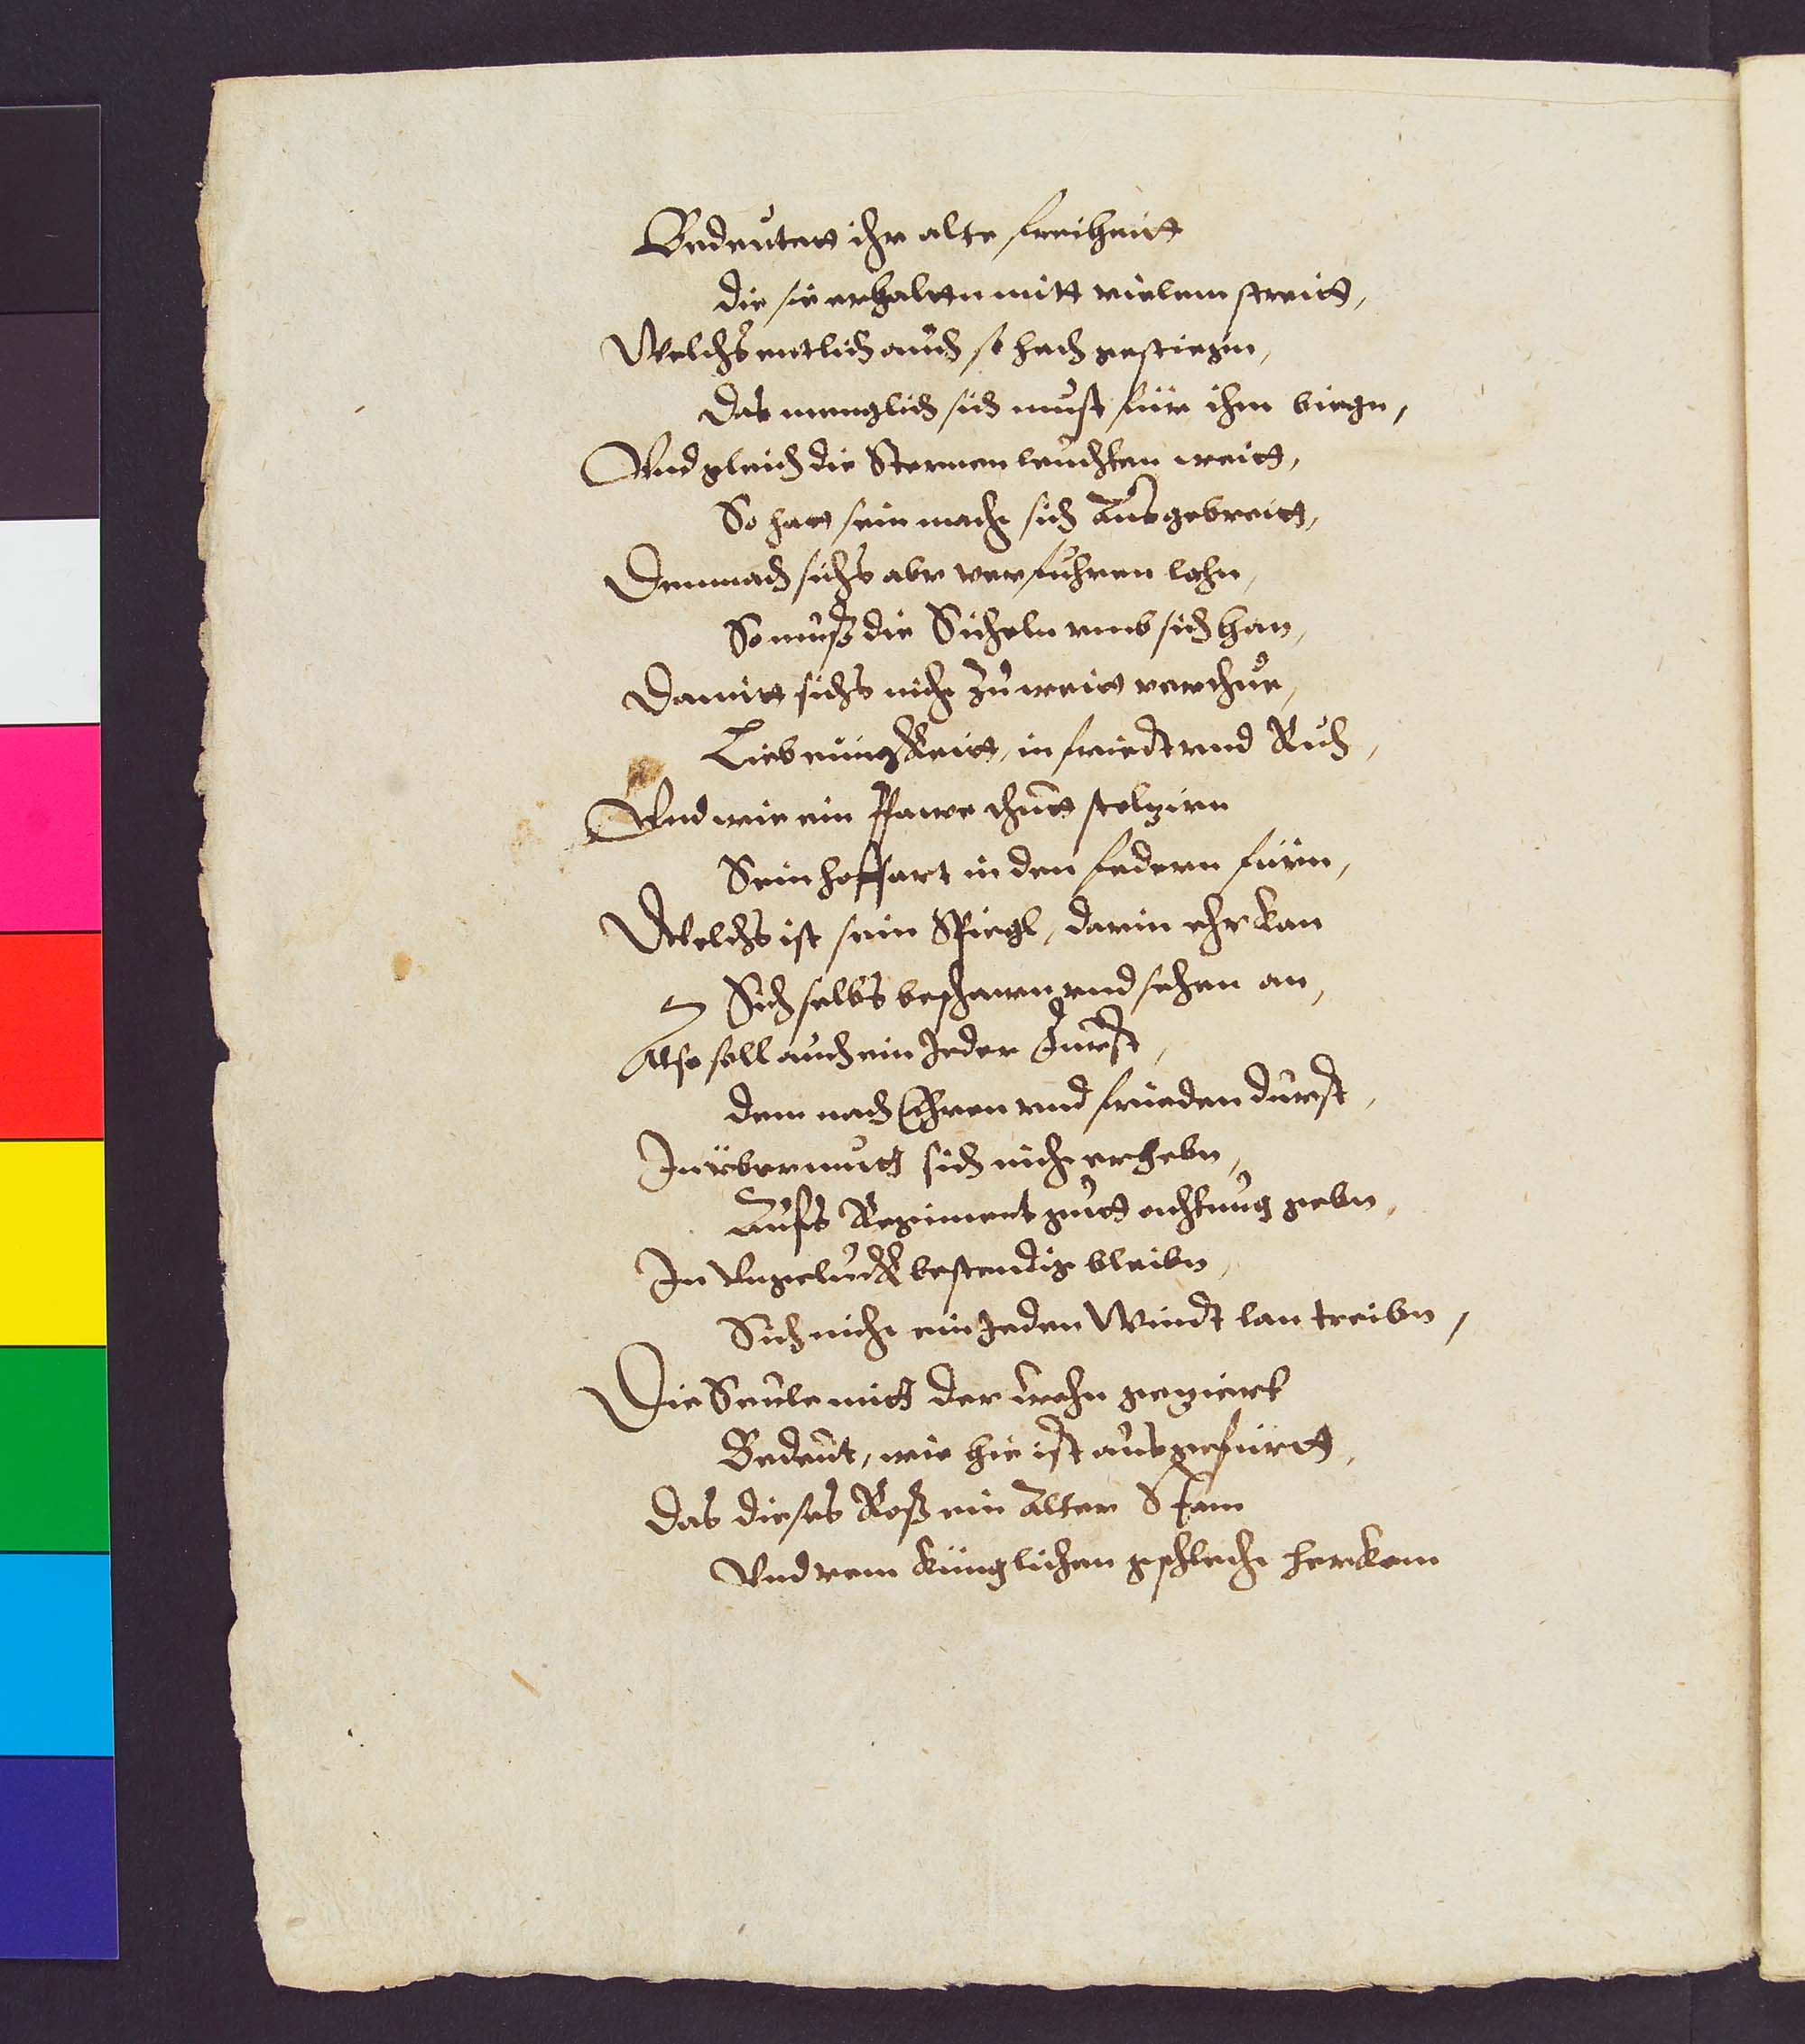 Bedeutett ihr alte freiheitt
die sie erhaltten mitt vielem streitt,
Welchs entlich auch so hoch gestiegen,
Das menglich sich must für ihm biegn,
Vnd gleich die Sternen leuchten weitt,
So hatt sein macht sich Ausgebreitt,
Demnach sichs aber verfuhren lahn,
So muß die Sicheln vmb sich han,
Damitt sichs nicht zu weitt verthue,
Lieb einigkeitt, in friedt vnd Ruh,
Vnd wie ein Pfawe thutt stolzirn
Sein hoffart in den federn fürn,
Welchs ist sein Spiegl, darin ehr kan
Sich selbs beschawen vnd sehen an,
Also soll auch ein Jeder Furst,
dem nach Ehren vnd frieden durst,
In vbermutt sich nicht erhebn,
Aufs Regiment gutt achtung gebn,
In Vngeluckh bestendig bleibn,
Sich nicht ein Jeden Windt lan treibn,
Die Seule mitt der krohn geziert
Bedeut, wie hie ist ausgefürtt,
Das dieses Roß ein Alter Stam
Vnd vom künglichen geschlecht herkam